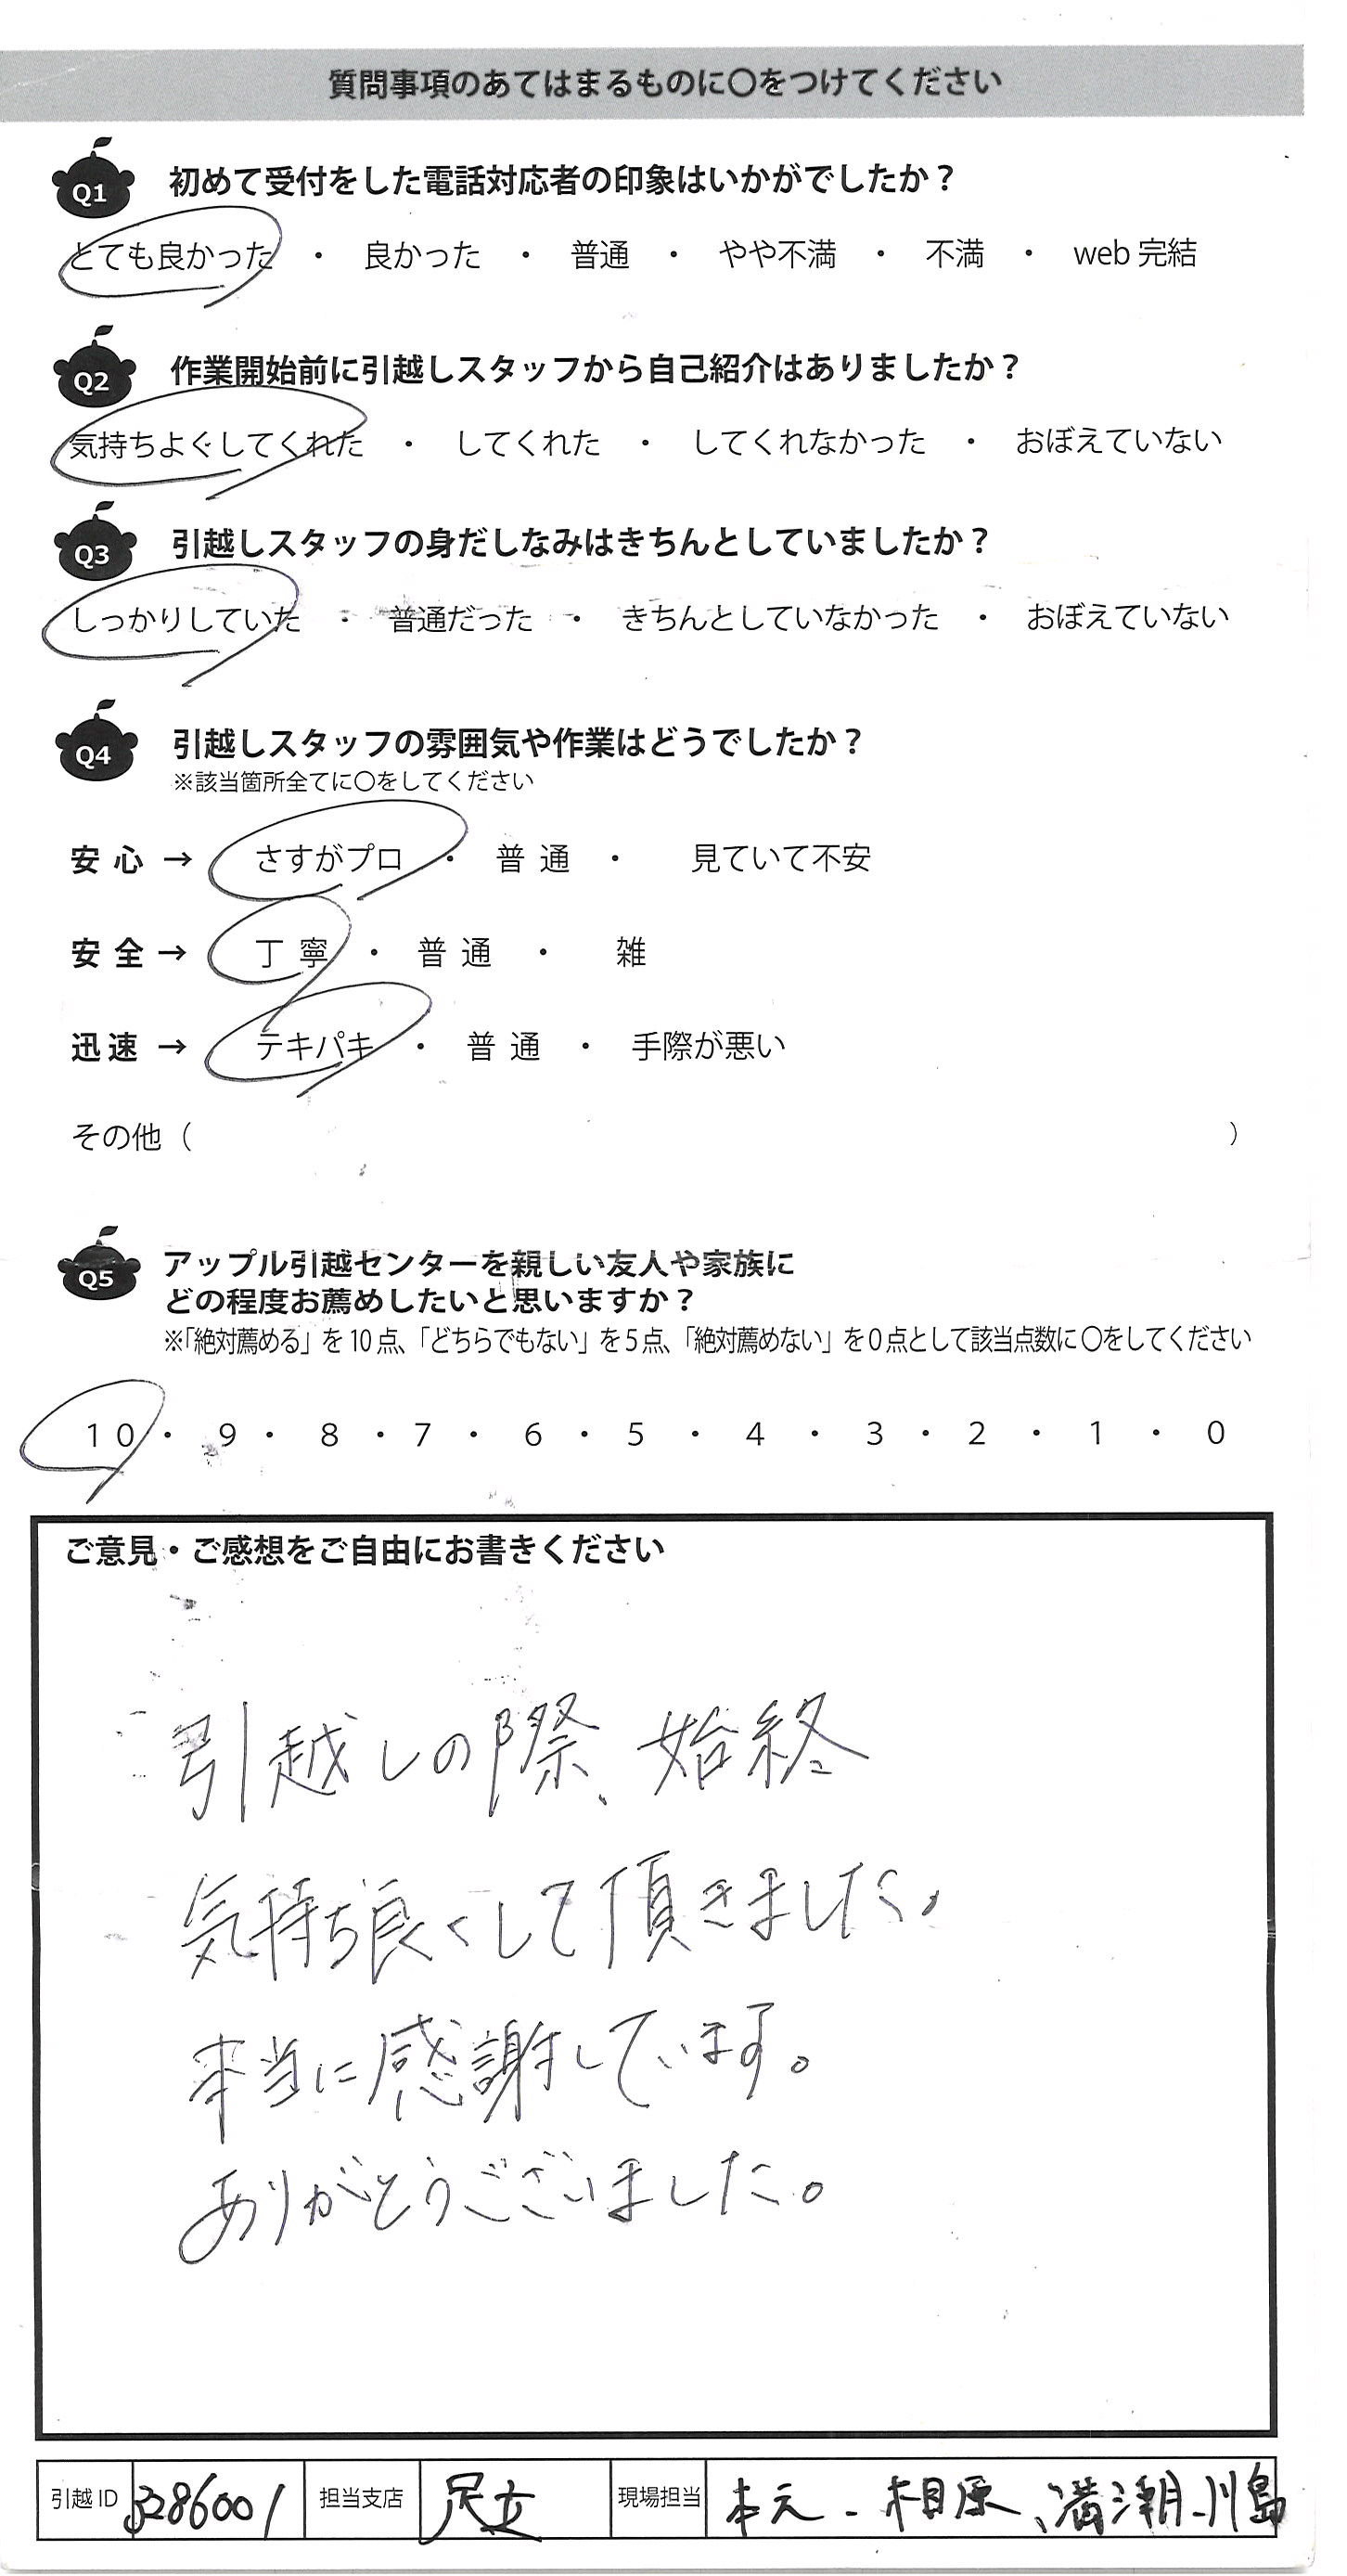 質問事項のあてはまるものに〇をつけてください
Q1 初めて受付をした電話対応者の印象はいかがでしたか？
とても良かった ・ 良かった ・ 普通 ・ やや不満 ・ 不満 ・ web 完結
Q2 作業開始前に引越しスタッフから自己紹介はありましたか？
気持ちよくしてくれた ・ してくれた ・ してくれなかった ・ おぼえていない
Q3 引越しスタッフの身だしなみはきちんとしていましたか？
しっかりしていた ・ 普通だった ・ きちんとしていなかった ・ おぼえていない
Q4 引越しスタッフの雰囲気や作業はどうでしたか？
※該当箇所全てに〇をしてください
安心 → さすがプロ ・ 普通 ・ 見ていて不安
安全 → 丁寧 ・ 普通 ・ 雑
迅速 → テキパキ ・ 普通 ・ 手際が悪い
その他（ ）
Q5 アップル引越センターを親しい友人や家族に
どの程度お薦めしたいと思いますか？
※「絶対薦める」を10点、「どちらでもない」を5点、「絶対薦めない」を0点として該当点数に〇をしてください
10 ・ 9 ・ 8 ・ 7 ・ 6 ・ 5 ・ 4 ・ 3 ・ 2 ・ 1 ・ 0
ご意見・ご感想をご自由にお書きください
引越しの際、始終
気持ち良くして頂きました。
本当に感謝しています。
ありがとうございました。
引越ID 3286001 担当支店 足立 現場担当 本元、相原、溝潮、川島